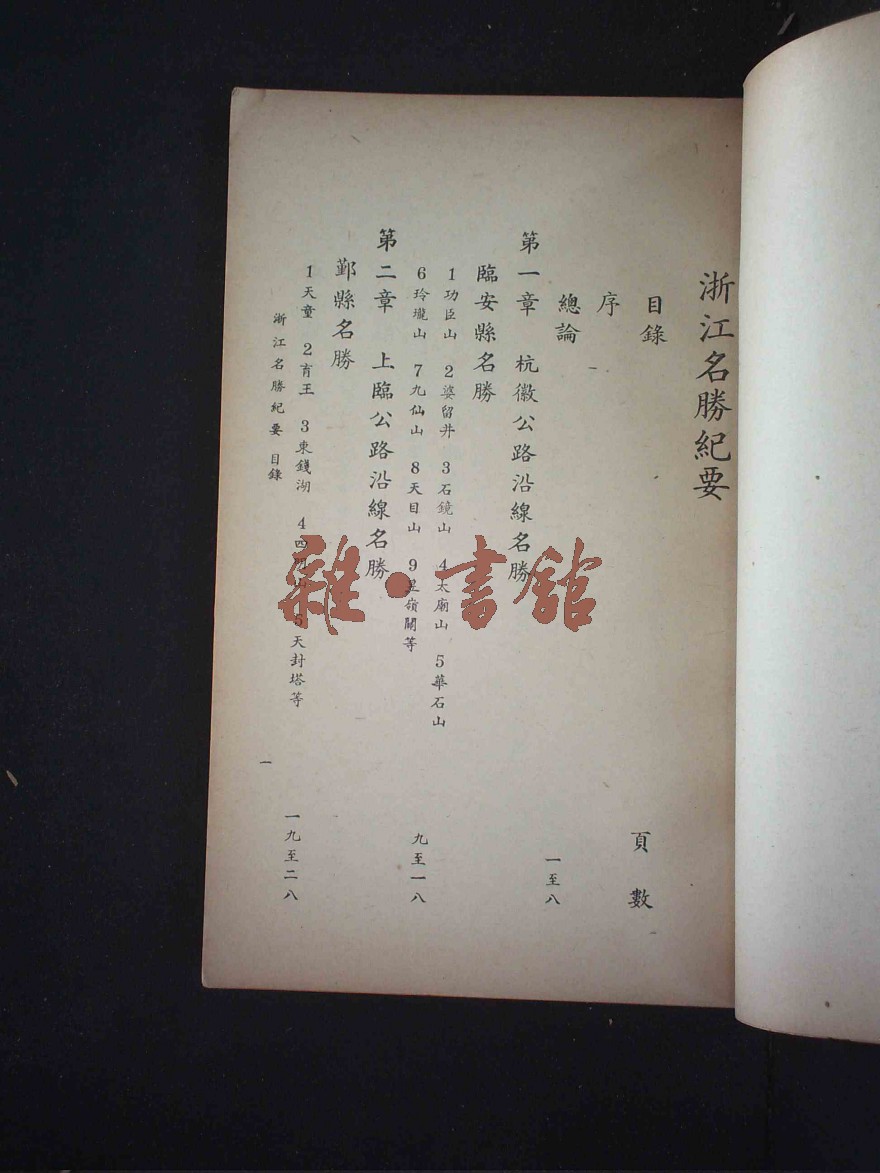 浙江名勝紀要
目錄 頁數
序
總論 一至八
第一章 杭徽公路沿線名勝
臨安縣名勝
1功臣山 2婆留井 3石鏡山 4太廟山 5華石山
6玲瓏山 7九仙山 8天目山 9昱嶺關等 九至一八
第二章 上臨公路沿線名勝
鄞縣名勝
1天童 2育王 3東錢湖 4四明山 5天封塔等 一九至二八
浙江名勝紀要 目錄 一
雜·書館